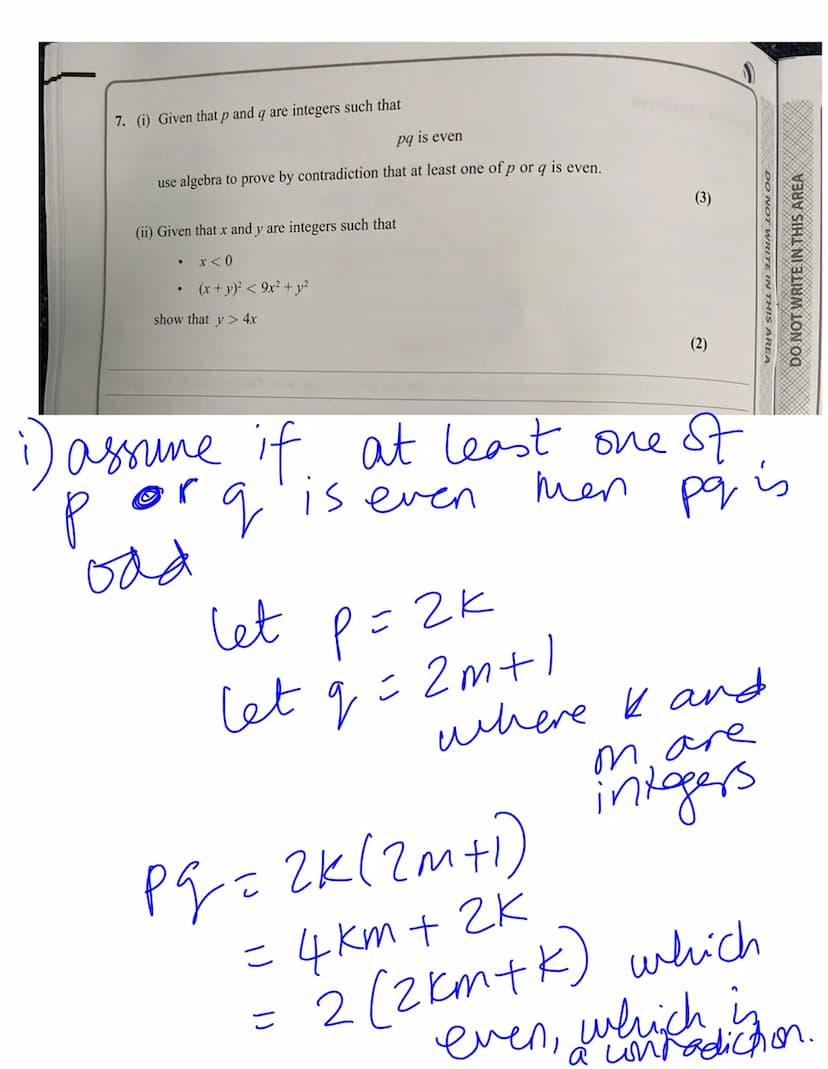 7. (i) Given that p and q are integers such that
pq is even
use algebra to prove by contradiction that at least one of p or q is even.
(3)
(ii) Given that x and y are integers such that
• x < 0
• (x + y)² < 9x² + y²
show that y > 4x
(2)
DO NOT WRITE IN THIS AREA
DO NOT WRITE IN THIS AREA
i) assume if at least one of
p or q is even then pq is
odd
let p = 2k
let q = 2m+1
where k and
m are
integers
pq = 2k(2m+1)
= 4km + 2k
= 2(2km+k) which
even, which is
a contradiction.